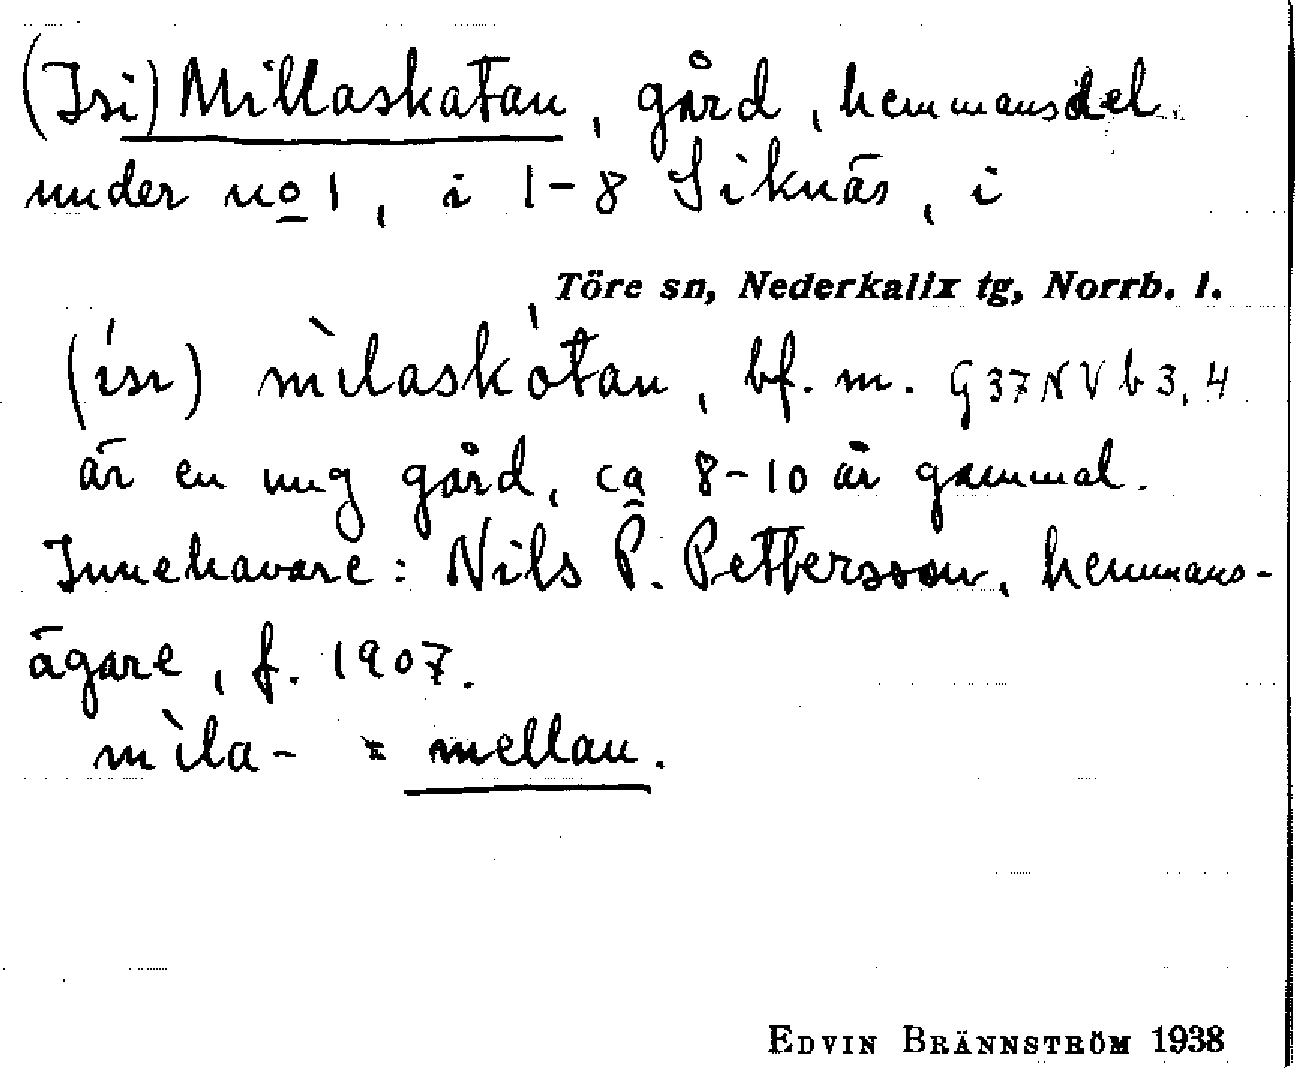 (Isi) Millaskatan, gård, hemmansdel
under no 1, i 1-8 Siknäs, i
Töre sn, Nederkalix tg, Norrb. l.
(ísı) mìlaskótan, bf. m. G37NVb3,4
är en ung gård, ca 8-10 år gammal.
Innehavare: Nils P. Pettersson, hemmans-
ägare, f. 1907.
mìla- = mellan.
EDVIN BRÄNNSTRÖM 1938